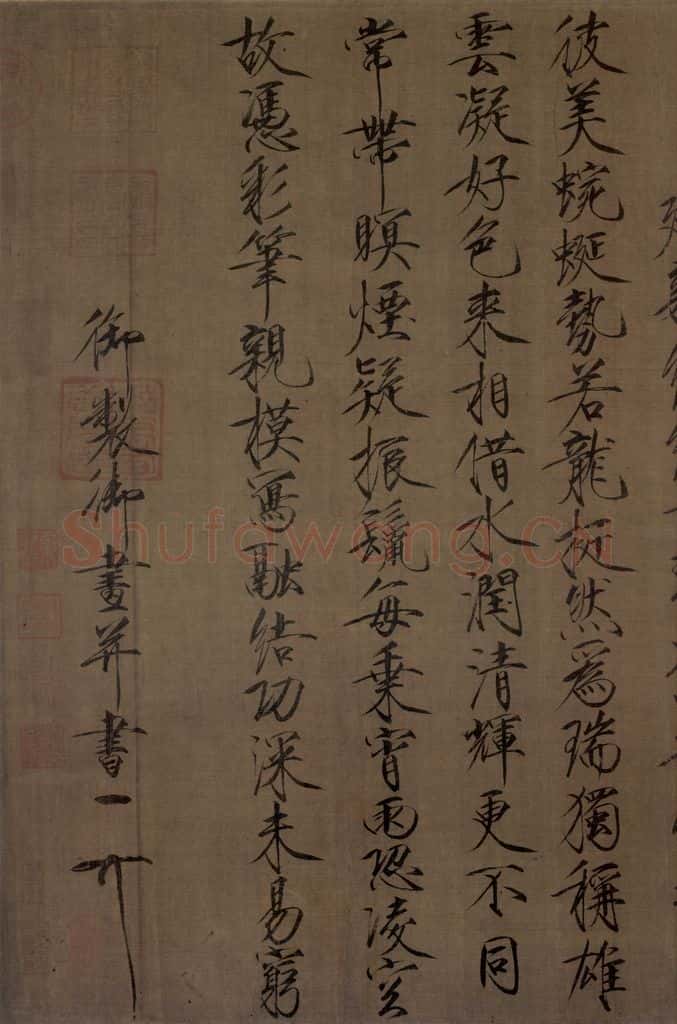 彼美蜿蜒勢若龍挺然爲瑞獨稱雄
雲凝好色来相借水潤清輝更不同
常帶瞑煙疑振鬣每乗宵雨恐凌空
故憑彩筆親模寫融結功深未易窮
御製御畫并書
Shufawang.Cn